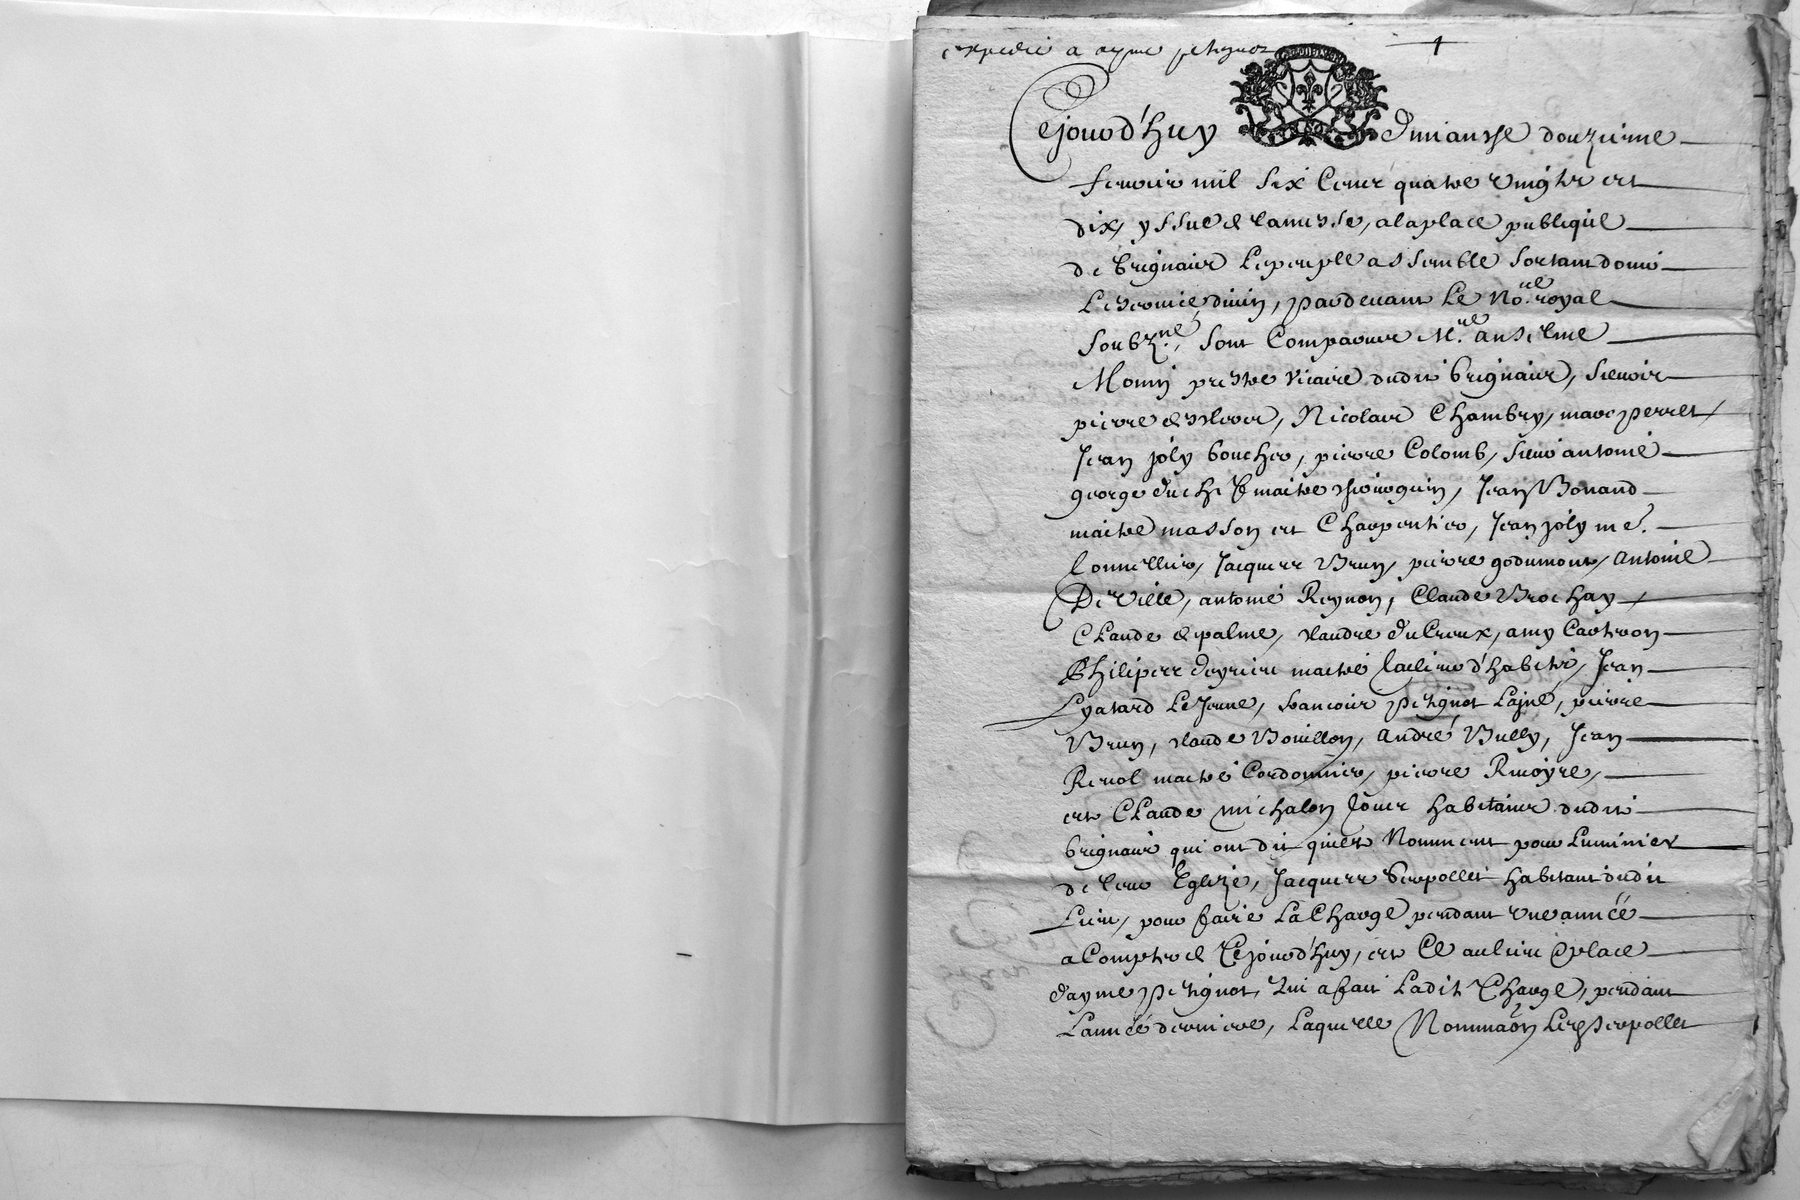 expedié a ayme petignot
1
Cejourd'huy dimansche douzieme
fevrier mil six Cents quatre vingtz et
dix, yssue de la messe, a la place publique
de brignais Le peuple assemblé sortant d'ouir
Le service divin, pardevant Le No.re royal
soubz.né, sont Comparus M.re anselme
prestre vicaire dudit brignais, sieurs
pierre Nicolas Chambry, marc perret,
Jean joly boucher, pierre Colomb, sieur antoine
george maitre chirurgien, Jean Bonand
maitre masson et Charpentier, Jean joly me.
tonnellier, Jacques Brun, pierre godumont, antoine
De Ville, antoine Reynon, Claude Brochay
Claude de palme, Claude duCreux, amy
Philipes maitre tailleur d'habitz, Jean
Lyatard Le Jeune, francois petignot Lajné, pierre
Brun, Claude Bouillon, André Bully, Jean
Renol maitre Cordonnier, pierre
et Claude michalon tous habitans dudit
brignais qui ont dit qu'ils Nomment pour Luminier
de leur Eglize, Jacques Serpollet habitant dudit
Lieu, pour faire La Charge pendant une année
a Compter de Cejourd'huy, et Ce au lieu & place
d'ayme petignot, qui a fait Ladite Charge, pendant
L'année derniere, Laquelle Nommaôn Serpollet